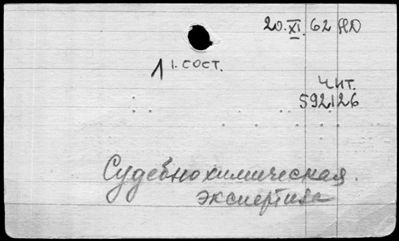 20.XI.62 НД
1 1. СОСТ.
Чит.
592126
Судебнохимическая.
экспертиза